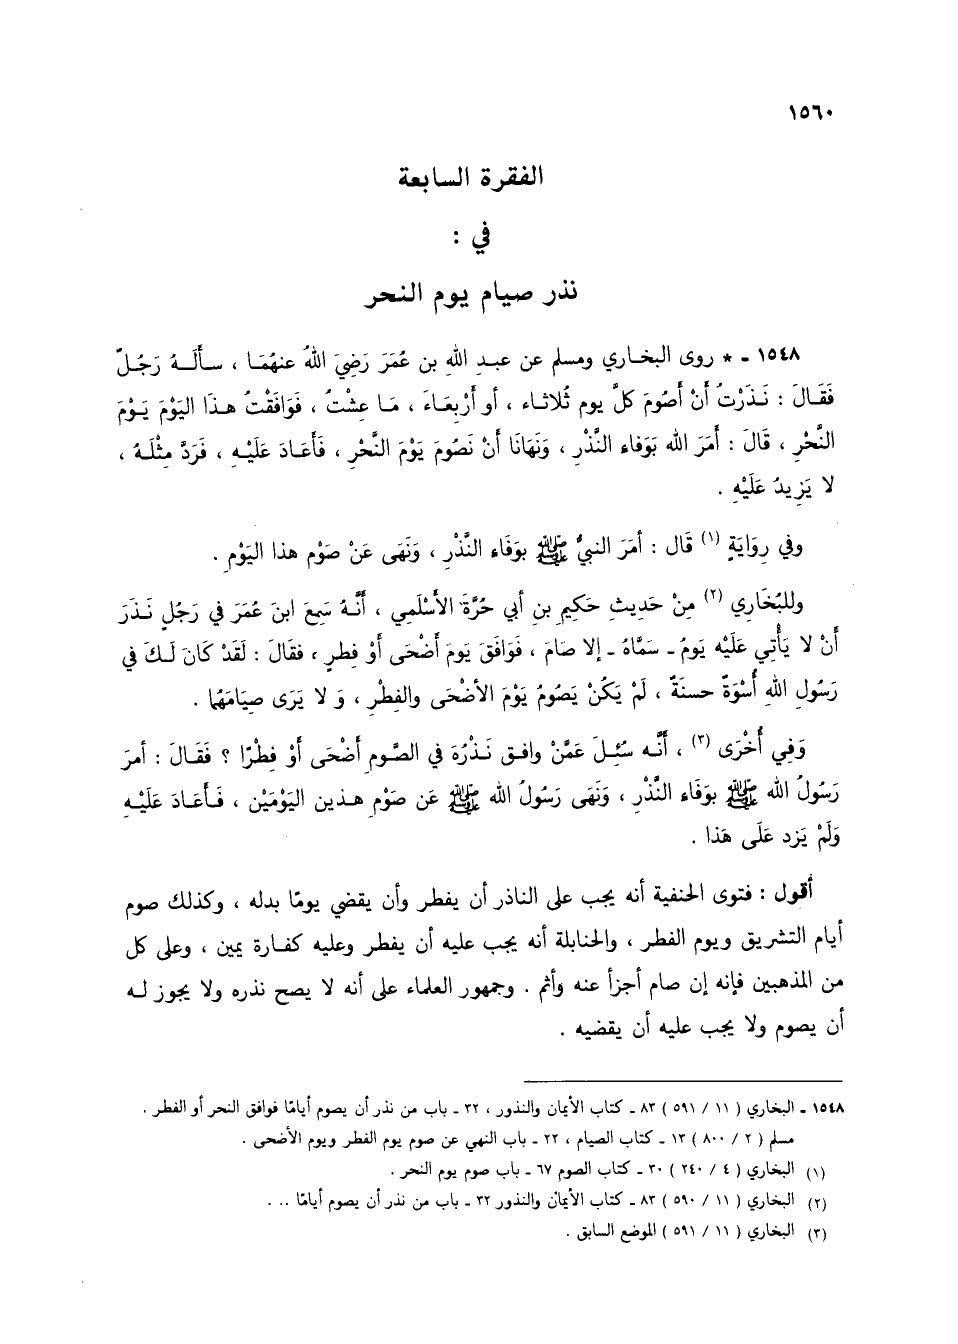 ١٥٦٠
الفقرة السابعة
في :
نذر صيام يوم النحر
١٥٤٨ - * روى البخاري ومسلم عن عبد اللهِ بن عُمَرَ رَضِيَ اللهُ عنهُمَا ، سأَلَهُ رَجُلٌ
فَقَالَ : نَذَرْتُ أَنْ أَصُومَ كلَّ يوم ثُلاثاء ، أو أَرْبِعَاءَ ، مَا عِشْتُ ، فَوَافَقْتُ هذَا اليَوْمَ يَوْمَ
النَّحْرِ ، قَالَ : أَمَرَ الله بِوَفاءِ النَّذْرِ ، وَنَهَانَا أَنْ نَصُومَ يَوْمَ النَّحْرِ ، فَأَعَادَ عَلَيْهِ ، فَرَدَّ مِثْلَهُ ،
لا يَزِيدُ عَلَيْهِ .
وفي رِوَايَةٍ (١) قَال : أمَرَ النبيُّ ﷺ بوَفَاءِ النَّذْرِ ، وَنَهَى عَنْ صَوْمِ هذا اليَوْمِ .
وللبُخَاري (٢) مِنْ حَدِيثِ حَكِيمِ بنِ أبي حُرَّةَ الأَسْلَمِي ، أَنَّهُ سَمِعَ ابنَ عُمَرَ في رَجُلٍ نَذَرَ
أَنْ لا يَأْتِي عَلَيْهِ يَومُ - سَمَّاهُ - إلا صَامَ ، فَوَافَقَ يَومَ أَضْحَى أَوْ فِطرٍ ، فقَالَ : لَقَدْ كَانَ لَكَ في
رَسُولِ اللهِ أُسْوَةٌ حسنَةٌ ، لَمْ يَكُنْ يَصُومُ يَوْمَ الأضْحَى والفِطْرِ ، وَ لا يَرَى صِيَامَهُما .
وَفِي أُخْرَى (٣) ، أَنَّه سُئِلَ عَمَّنْ وافق نَذْرُهَ في الصَّوم أَضْحَى أَوْ فِطْرًا ؟ فَقَالَ : أمَرَ
رَسُولُ الله ﷺ بوَفَاءِ النَّذْرِ ، وَنَهَى رَسُولُ الله ﷺ عَن صَوْم هذين اليَوْمَيْن ، فَأَعَادَ عَلَيْهِ
وَلَمْ يَزد عَلَى هَذا .
أقول : فتوى الحنفية أنه يجب على الناذر أن يفطر وأن يقضي يومًا بدله ، وكذلك صوم
أيام التشريق ويوم الفطر ، والحنابلة أنه يجب عليه أن يفطر وعليه كفارة يمين ، وعلى كل
من المذهبين فإنه إن صام أجزأ عنه وأثم . وجمهور العلماء على أنه لا يصح نذره ولا يجوز له
أن يصوم ولا يجب عليه أن يقضيه .
١٥٤٨ - البخاري ( ١١ / ٥٩١ ) ٨٣ - كتاب الأيمان والنذور ، ٣٢ - باب من نذر أن يصوم أيامًا فوافق النحر أو الفطر .
مسلم ( ٢ / ٨٠٠ ) ١٣ - كتاب الصيام ، ٢٢ - باب النهي عن صوم يوم الفطر ويوم الأضحى .
(١) البخاري ( ٤ / ٢٤٠ ) ٣٠ - كتاب الصوم ٦٧ - باب صوم يوم النحر .
(٢) البخاري ( ١١ / ٥٩٠ ) ٨٣ - كتاب الأيمان والنذور ٣٢ - باب من نذر أن يصوم أيامًا ...
(٣) البخاري ( ١١ / ٥٩١ ) الموضع السابق .